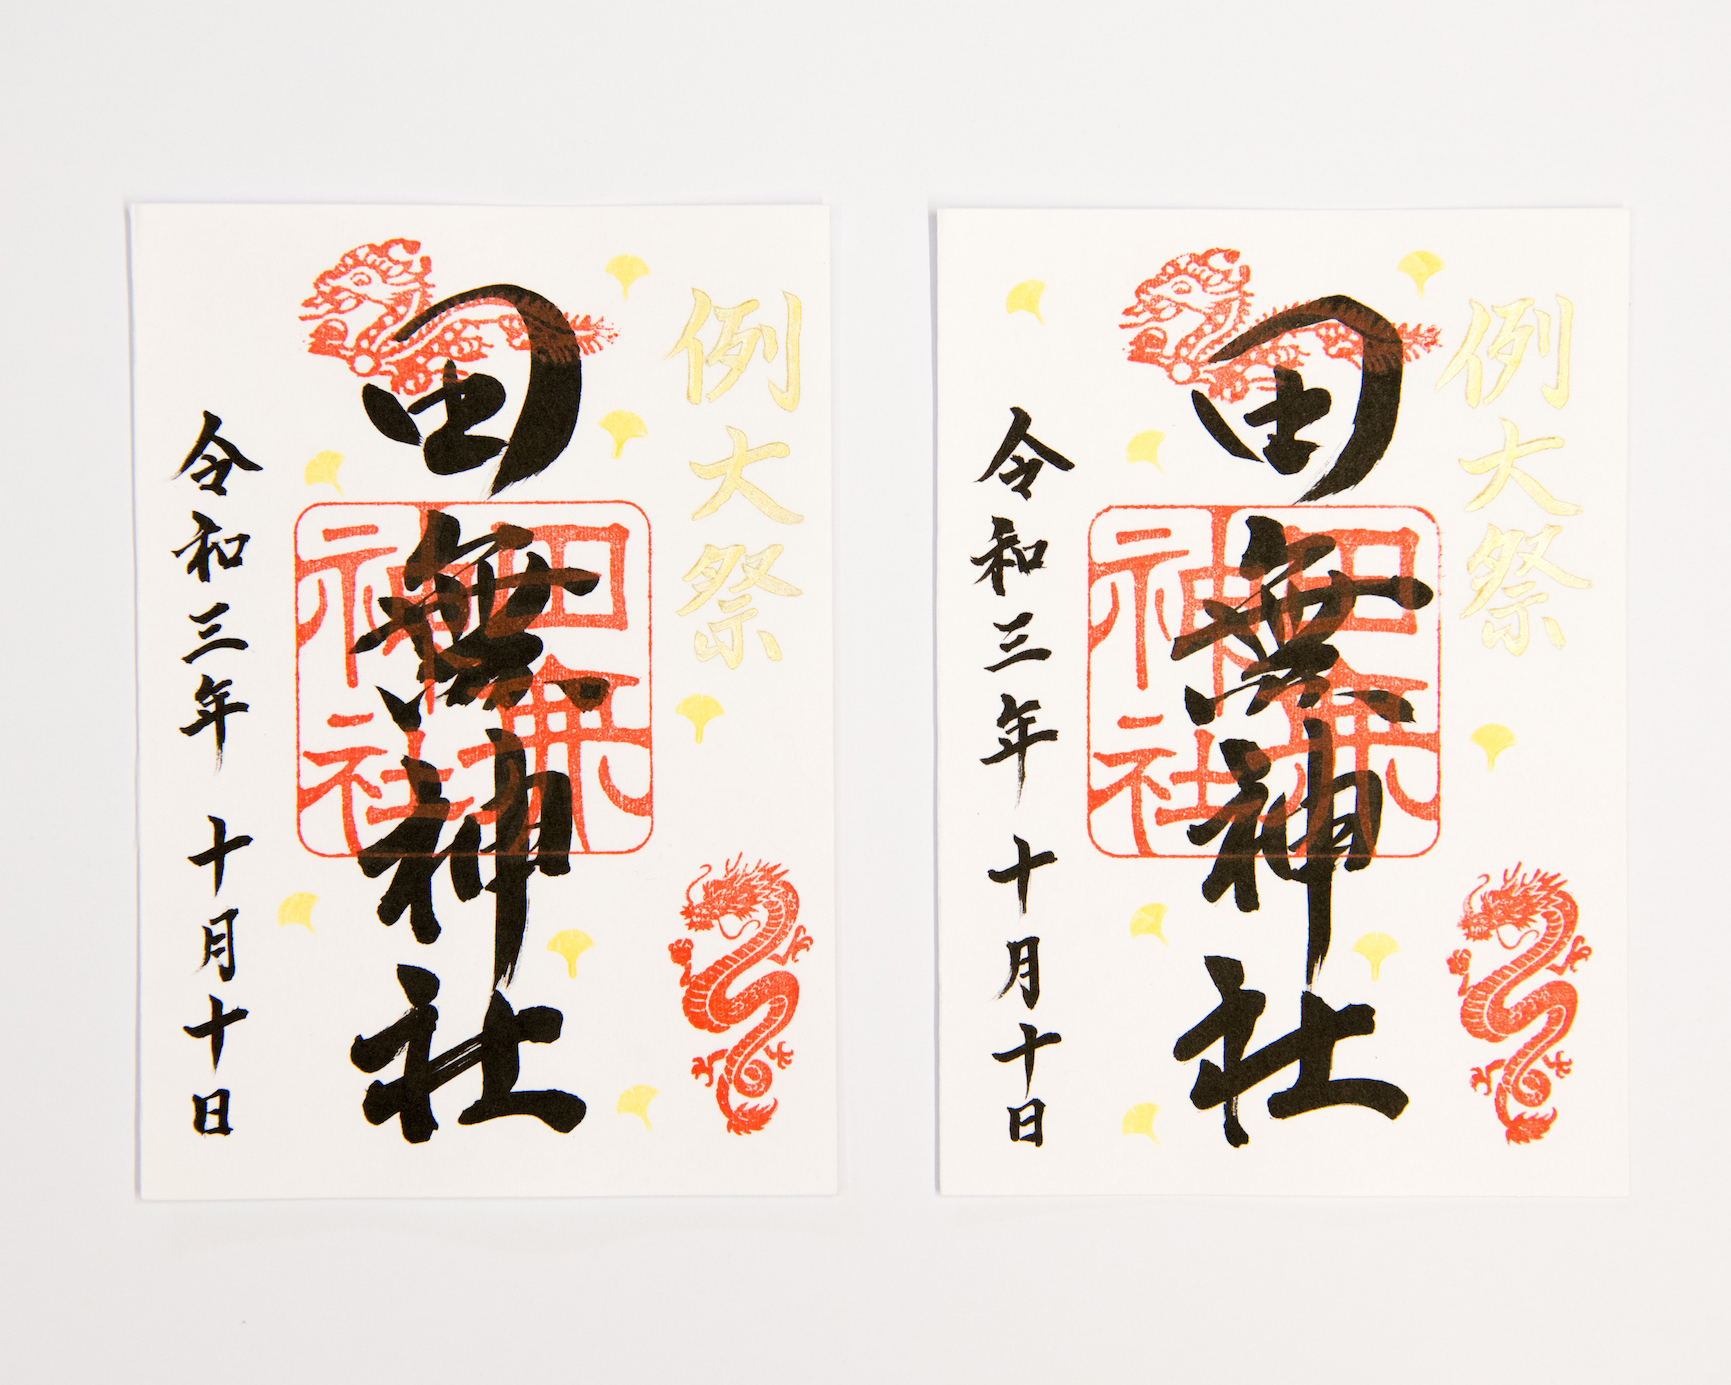 例大祭
田無神社
田無神社
令和三年 十月十日
例大祭
田無神社
田無神社
令和三年 十月十日